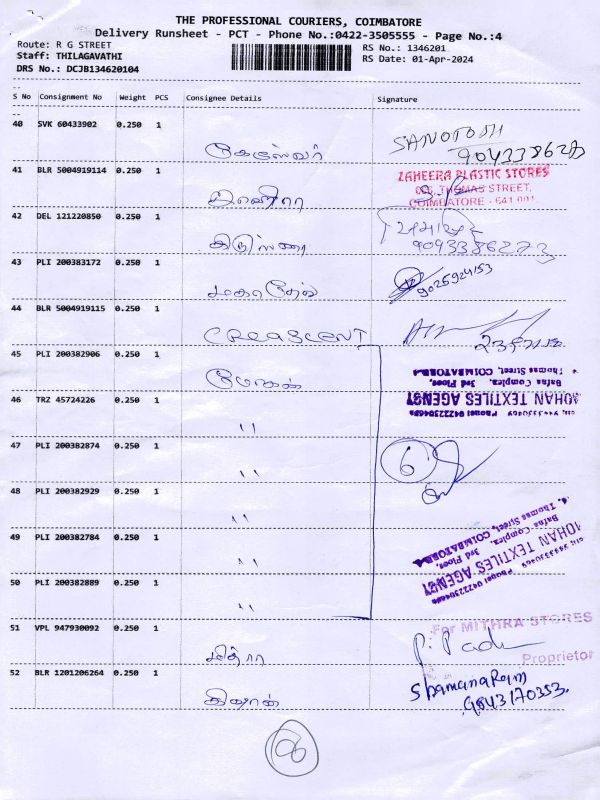 THE PROFESSIONAL COURIERS, COIMBATORE
Delivery Runsheet - PCT - Phone No.:0422-3505555 - Page No.:4
Route: R G STREET
RS No.: 1346201
Staff: THILAGAVATHI
RS Date: 01-Apr-2024
DRS No.: DCJB134620104
S No Consignment No Weight PCS Consignee Details Signature
40 SVK 60433902 0.250 1
SANOTOSH
41 BLR 5004919114 0.250 1
ZAHEERA PLASTIC STORES
THOMAS STREET,
COIMBATORE - 641 001
42 DEL 121220850 0.250 1
43 PLI 200383172 0.250 1
மகாதேவ்
9025924153
44 BLR 5004919115 0.250 1
CREASCENT
45 PLI 200382906 0.250 1
மோகன்
MOHAN TEXTILES AGENCY
Bafna Complex, 3rd Floor,
Thomas Street, COIMBATORE-1
46 TRZ 45724226 0.250 1 "
47 PLI 200382874 0.250 1 "
6
48 PLI 200382929 0.250 1 "
49 PLI 200382784 0.250 1 "
50 PLI 200382889 0.250 1 "
MOHAN TEXTILES AGENCY
Bafna Complex, 3rd Floor,
Thomas Street, COIMBATORE-1
51 VPL 947930092 0.250 1
மித்ரா
For MITHRA STORES
Proprietor
52 BLR 1201206264 0.250 1
ShamanaRam
9843170353.